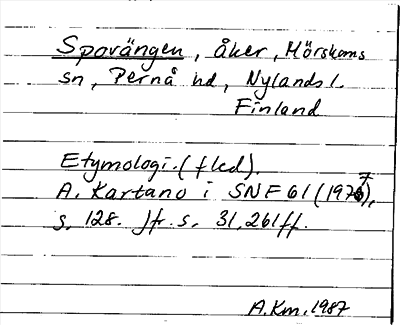 Spovängen, åker, Mörskoms
sn, Pernå hd, Nylands l.
Finland
Etymologi. (fled).
A. Kartano i SNF 61 (1977),
s. 128. Jfr s. 31, 261 ff.
A.Km. 1987